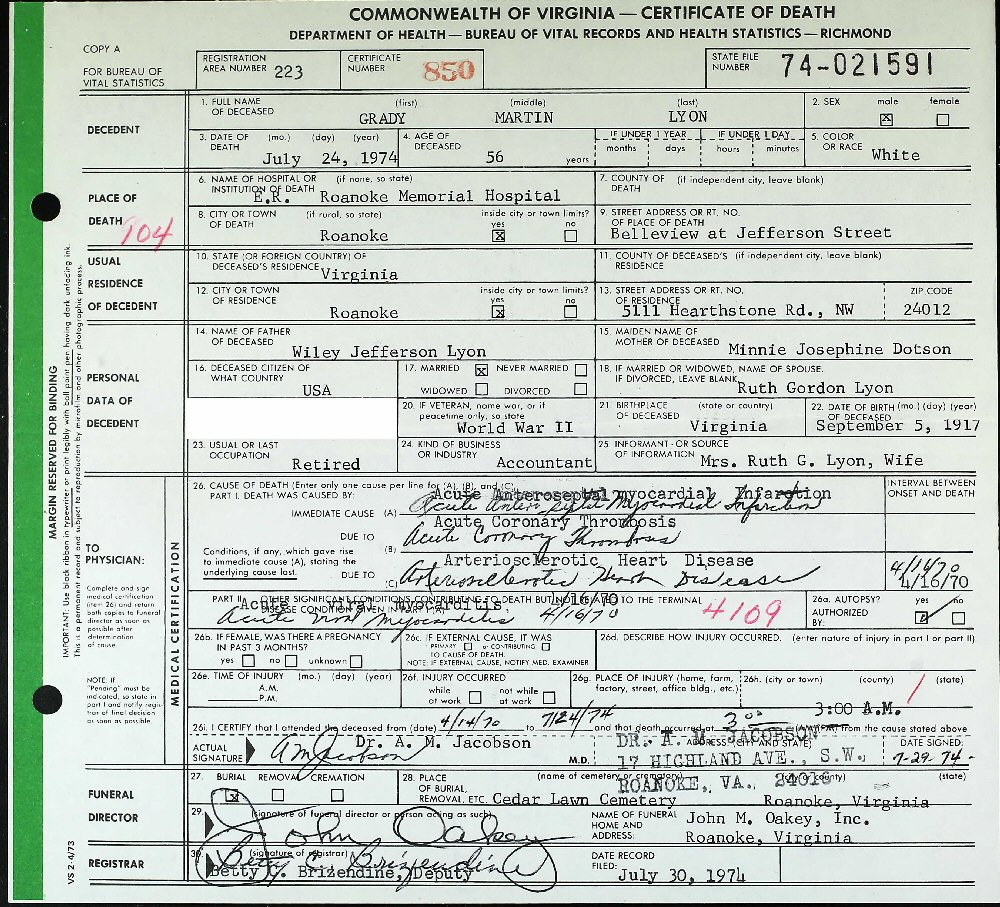 COMMONWEALTH OF VIRGINIA — CERTIFICATE OF DEATH
DEPARTMENT OF HEALTH — BUREAU OF VITAL RECORDS AND HEALTH STATISTICS — RICHMOND
COPY A
FOR BUREAU OF VITAL STATISTICS
REGISTRATION AREA NUMBER 223
CERTIFICATE NUMBER 850
STATE FILE NUMBER 74-021591
DECEDENT
1. FULL NAME OF DECEASED (first) (middle) (last)
GRADY MARTIN LYON
2. SEX male ☒ female ☐
3. DATE OF DEATH (mo.) (day) (year)
July 24, 1974
4. AGE OF DECEASED 56 years
IF UNDER 1 YEAR months days
IF UNDER 1 DAY hours minutes
5. COLOR OR RACE White
PLACE OF DEATH
104
6. NAME OF HOSPITAL OR INSTITUTION OF DEATH (if none, so state)
E.R. Roanoke Memorial Hospital
7. COUNTY OF DEATH (if independent city, leave blank)
8. CITY OR TOWN OF DEATH (if rural, so state) inside city or town limits? yes ☒ no ☐
Roanoke
9. STREET ADDRESS OR RT. NO. OF PLACE OF DEATH
Belleview at Jefferson Street
USUAL RESIDENCE OF DECEDENT
10. STATE (OR FOREIGN COUNTRY) OF DECEASED'S RESIDENCE Virginia
11. COUNTY OF DECEASED'S RESIDENCE (if independent city, leave blank)
12. CITY OR TOWN OF RESIDENCE inside city or town limits? yes ☒ no ☐
Roanoke
13. STREET ADDRESS OR RT. NO. OF RESIDENCE
5111 Hearthstone Rd., NW
ZIP CODE
24012
PERSONAL DATA OF DECEDENT
14. NAME OF FATHER OF DECEASED
Wiley Jefferson Lyon
15. MAIDEN NAME OF MOTHER OF DECEASED Minnie Josephine Dotson
16. DECEASED CITIZEN OF WHAT COUNTRY
USA
17. MARRIED ☒ NEVER MARRIED ☐
WIDOWED ☐ DIVORCED ☐
18. IF MARRIED OR WIDOWED, NAME OF SPOUSE. IF DIVORCED, LEAVE BLANK
Ruth Gordon Lyon
20. IF VETERAN, name war, or if peacetime only, so state
World War II
21. BIRTHPLACE OF DECEASED (state or country)
Virginia
22. DATE OF BIRTH OF DECEASED (mo.) (day) (year)
September 5, 1917
23. USUAL OR LAST OCCUPATION
Retired
24. KIND OF BUSINESS OR INDUSTRY
Accountant
25. INFORMANT - OR SOURCE OF INFORMATION Mrs. Ruth G. Lyon, Wife
MARGIN RESERVED FOR BINDING
IMPORTANT: Use black ribbon in typewriter or print legibly with ball point pen having dark unfading ink.
This is a permanent record and subject to reproduction by microfilm and other photographic process.
TO PHYSICIAN:
Complete and sign medical certification (item 26) and return both copies to funeral director as soon as possible after determination of cause.
NOTE: IF "Pending" must be indicated, so state in part I and notify registrar of final decision as soon as possible.
MEDICAL CERTIFICATION
26. CAUSE OF DEATH (Enter only one cause per line for (A), (B), and (C)
PART I. DEATH WAS CAUSED BY:
INTERVAL BETWEEN ONSET AND DEATH
Acute Anteroseptal myocardial Infarction
IMMEDIATE CAUSE (A) Acute Antero septal Myocardial Infarction
Acute Coronary Thrombosis
DUE TO (B) Acute Coronary Thrombosis
Conditions, if any, which gave rise to immediate cause (A), stating the underlying cause last.
Arteriosclerotic Heart Disease
DUE TO (C) Arteriosclerotic Heart Disease
4/14/70
4/16/70
PART II. OTHER SIGNIFICANT CONDITIONS CONTRIBUTING TO DEATH BUT NOT RELATED TO THE TERMINAL DISEASE CONDITION GIVEN IN PART I (A)
Acute viral myocarditis, 4/16/70
Acute viral myocarditis 4/16/70
4109
26a. AUTOPSY? yes ☐ no ☐
AUTHORIZED BY:
26b. IF FEMALE, WAS THERE A PREGNANCY IN PAST 3 MONTHS?
yes ☐ no ☐ unknown ☐
26c. IF EXTERNAL CAUSE, IT WAS
PRIMARY ☐ or CONTRIBUTING ☐
TO CAUSE OF DEATH.
NOTE: IF EXTERNAL CAUSE, NOTIFY MED. EXAMINER
26d. DESCRIBE HOW INJURY OCCURRED. (enter nature of injury in part I or part II)
26e. TIME OF INJURY (mo.) (day) (year)
A.M.
P.M.
26f. INJURY OCCURRED
while at work ☐ not while at work ☐
26g. PLACE OF INJURY (home, farm, factory, street, office bldg., etc.)
26h. (city or town) (county) (state)
3:00 A.M.
26i. I CERTIFY that I attended the deceased from (date) 4/14/70 to 7/24/74 and that death occurred at 3 00 (AM/PM) from the cause stated above
ACTUAL SIGNATURE A M Jacobson
Dr. A. M. Jacobson
M.D.
ADDRESS: (CITY AND STATE)
DR. A. M. JACOBSON
17 HIGHLAND AVE., S.W.
ROANOKE, VA. 24016
DATE SIGNED:
7-29-74
FUNERAL DIRECTOR
27. BURIAL ☒ REMOVAL ☐ CREMATION ☐
28. PLACE OF BURIAL, REMOVAL, ETC. (name of cemetery or crematory) (city or county) (state)
Cedar Lawn Cemetery Roanoke, Virginia
29. (signature of funeral director or person acting as such)
John Oakey
NAME OF FUNERAL HOME AND ADDRESS:
John M. Oakey, Inc.
Roanoke, Virginia
REGISTRAR
30. (signature of registrar)
Betty C. Brizendine
Betty C. Brizendine, Deputy
DATE RECORD FILED:
July 30, 1974
VS 2-4/73